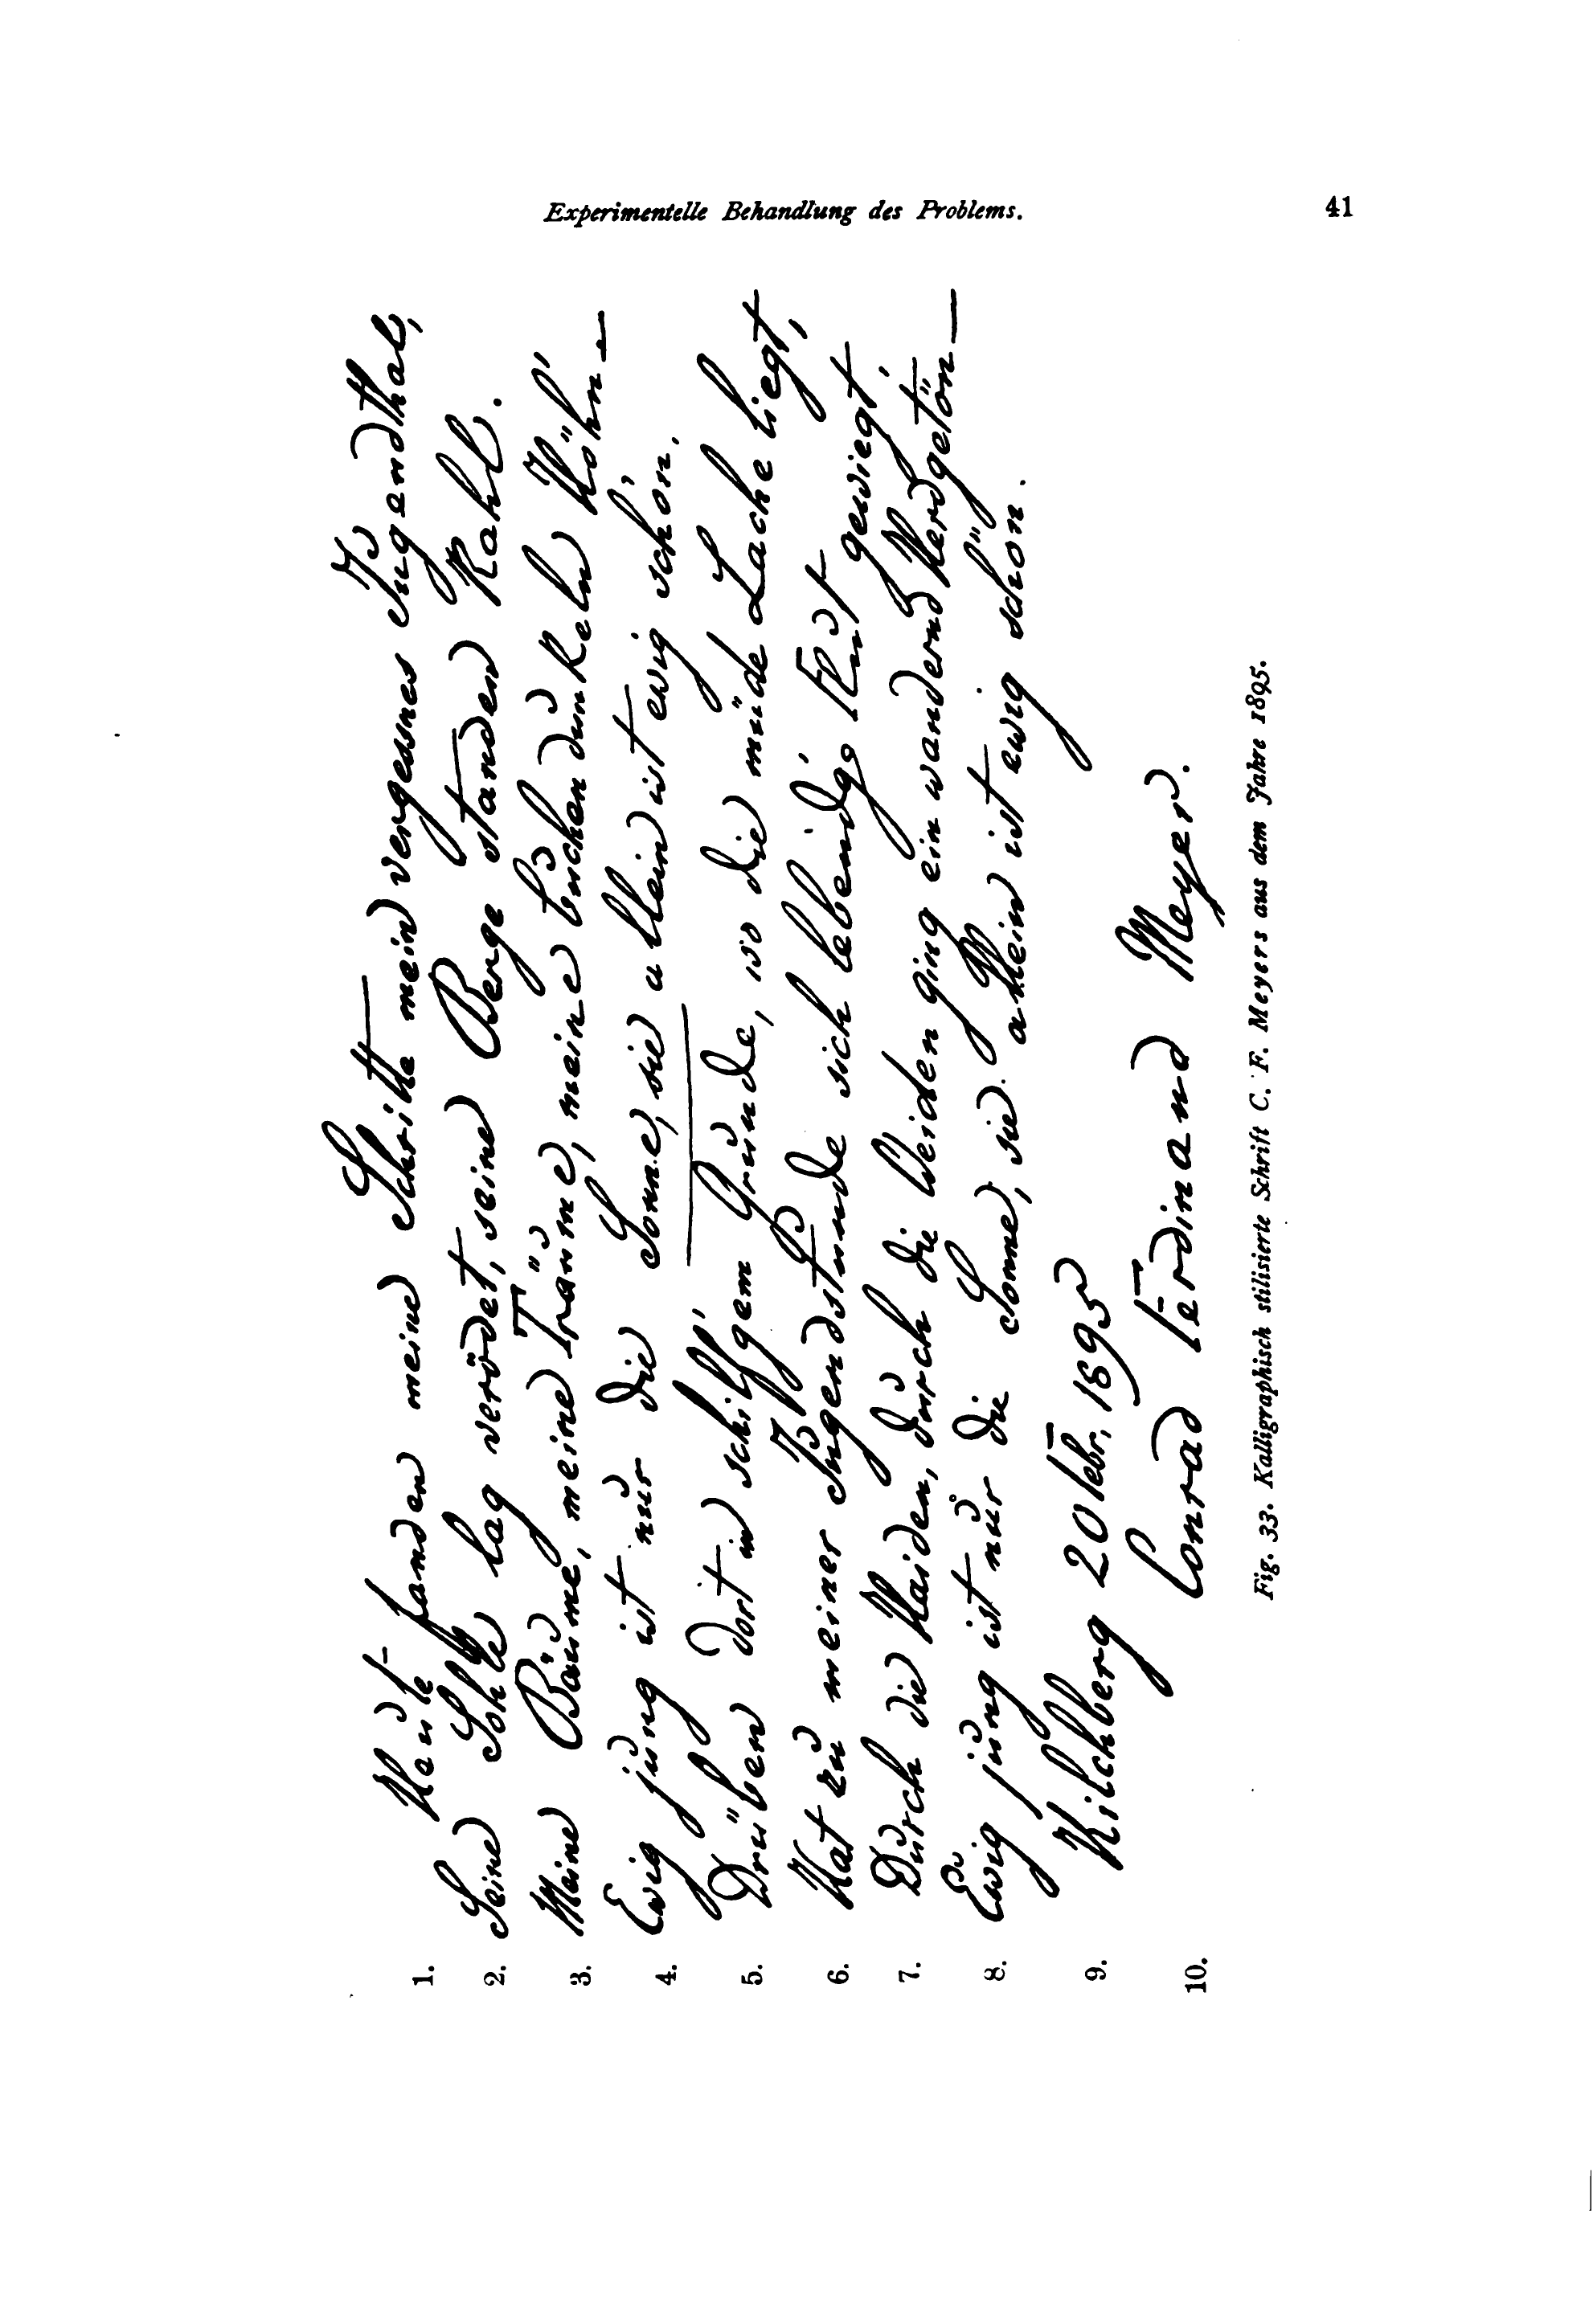 Experimentelle Behandlung des Problems. 41
1. Heute fanden meine Schritte mein vergessnes Jugendthal,
2. Seine Sohle lag verödet, seine Berge standen Kahl.
3. Meine Bäume, meine Träume, meine buchendunkeln Höhn –
4. Ewig jung ist nur die Sonne, sie allein ist ewig schön.
5. Drüben dort in schilfgem Grunde, wo die müde Lache liegt,
6. Hat zu meiner Jugendstunde sich lebendge Flut gewiegt,
7. Durch die Haiden, durch die Weiden ging ein wandernd Herdgetön –
8. Ewig jung ist nur die Sonne, sie allein ist ewig schön.
9. Kilchberg 20 Febr. 1895
10. Conrad Ferdinand Meyer.
Fig. 33. Kalligraphisch stilisierte Schrift C. F. Meyers aus dem Jahre 1895.